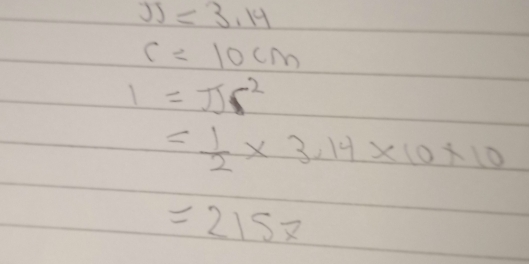 π = 3.14
r = 10cm
1 = πr²
= 1/2 × 3.14 × 10 × 10
= 215